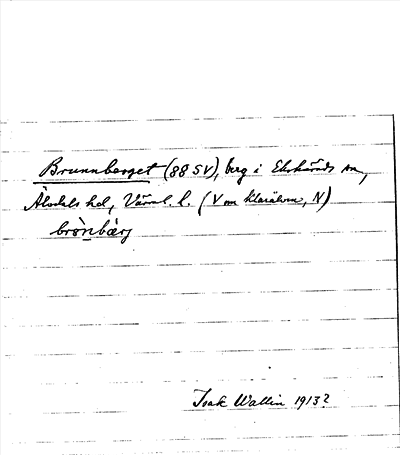 Brunnberget (88 SV), berg i Ekshärads sn,
Älvdals hd, Värml. l. (V om Klarälven, N)
brònbærj
Isak Wallin 1913?